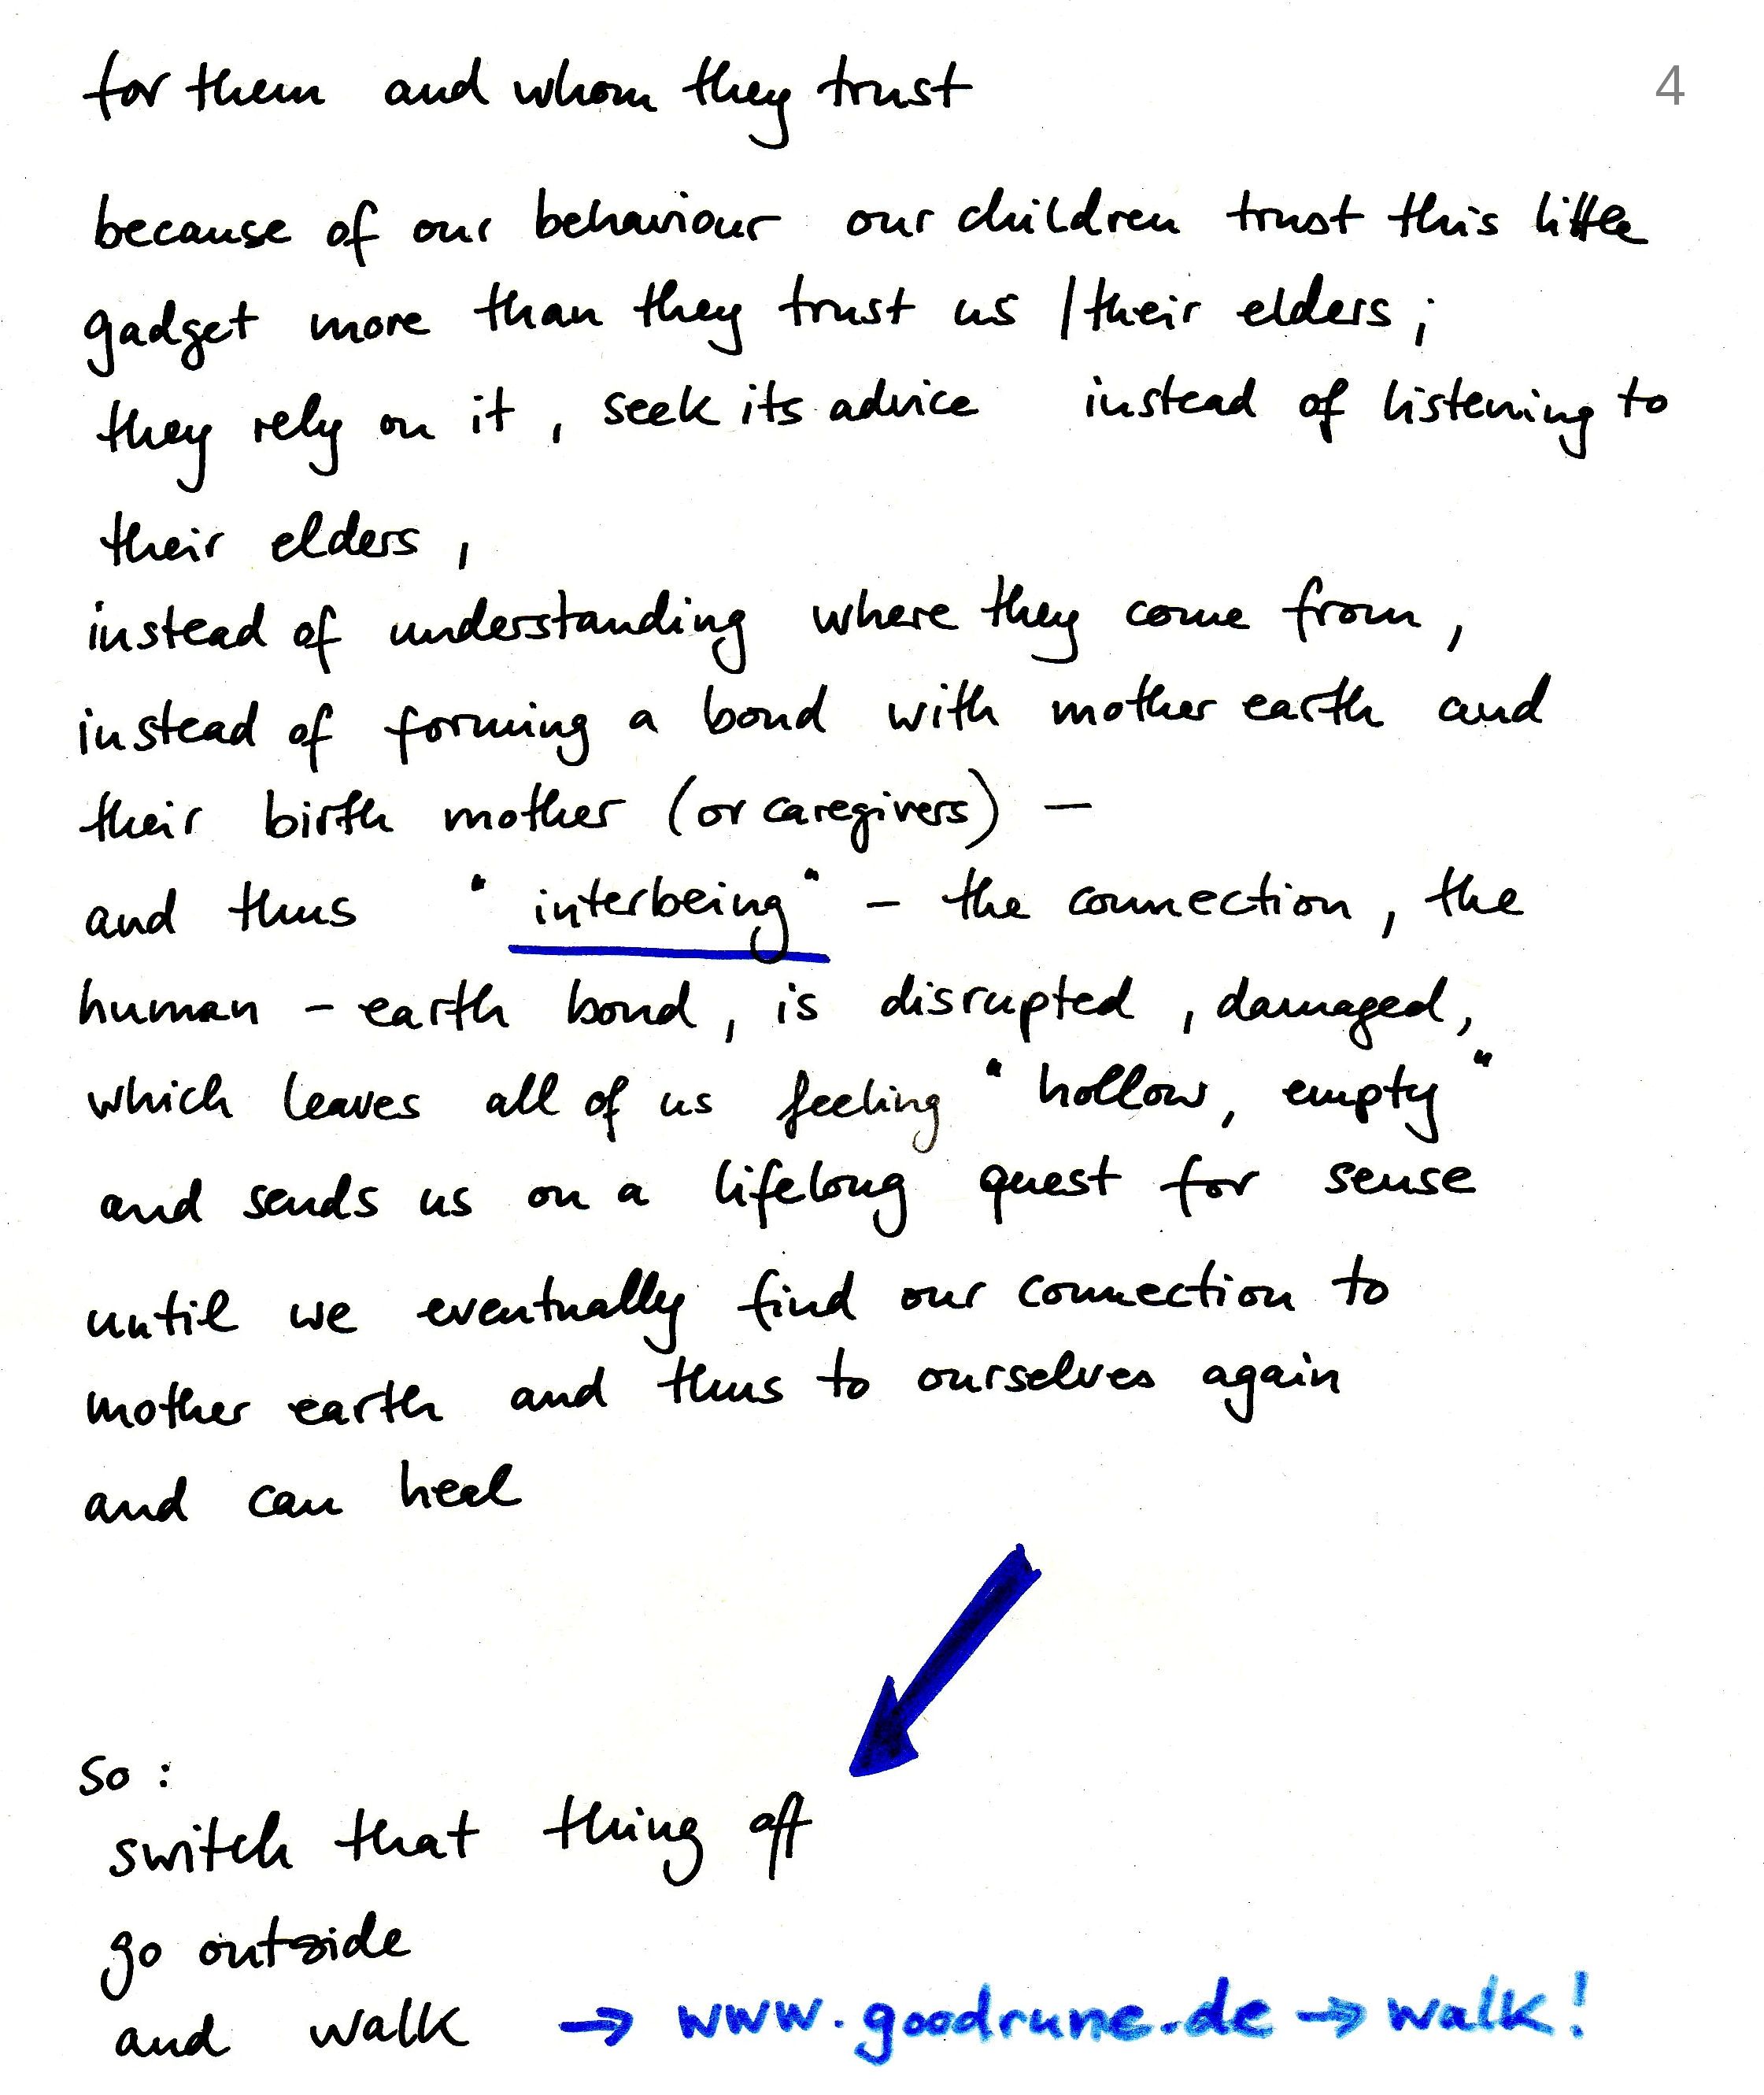 4
for them and whom they trust
because of our behaviour our children trust this little
gadget more than they trust us / their elders ;
they rely on it , seek its advice instead of listening to
their elders ,
instead of understanding where they come from ,
instead of forming a bond with mother earth and
their birth mother (or caregivers) –
and thus " interbeing " – the connection , the
human – earth bond , is disrupted , damaged ,
which leaves all of us feeling " hollow, empty "
and sends us on a lifelong quest for sense
until we eventually find our connection to
mother earth and thus to ourselves again
and can heal
so :
switch that thing off
go outside
and walk → www.goodrune.de → walk!